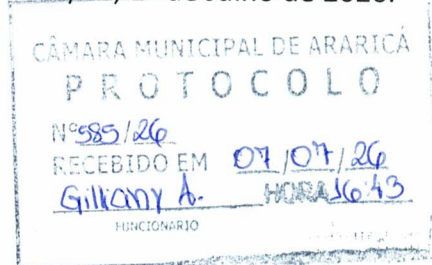 de 2026.
CÂMARA MUNICIPAL DE ARARICÁ
PROTOCOLO
Nº 585/26
RECEBIDO EM 07/07/26
Gilliany A. HORA 16:43
FUNCIONÁRIO